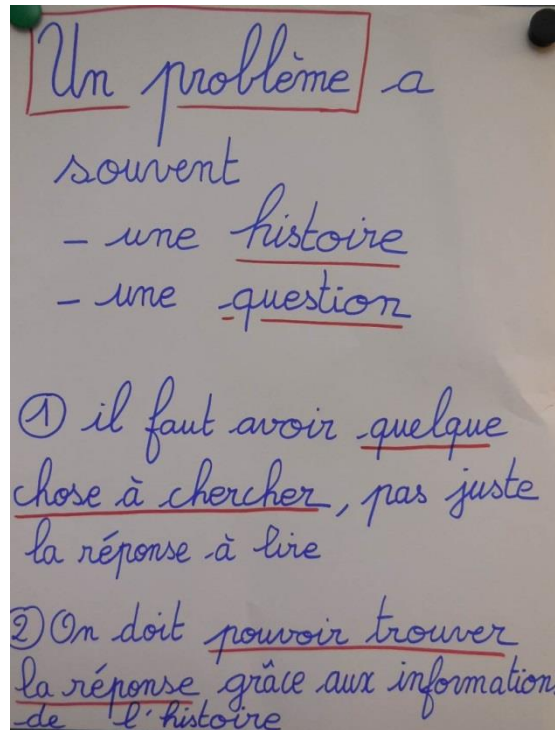 Un problème a
souvent
- une histoire
- une question
① il faut avoir quelque
chose à chercher, pas juste
la réponse à lire
② On doit pouvoir trouver
la réponse grâce aux information
de l'histoire